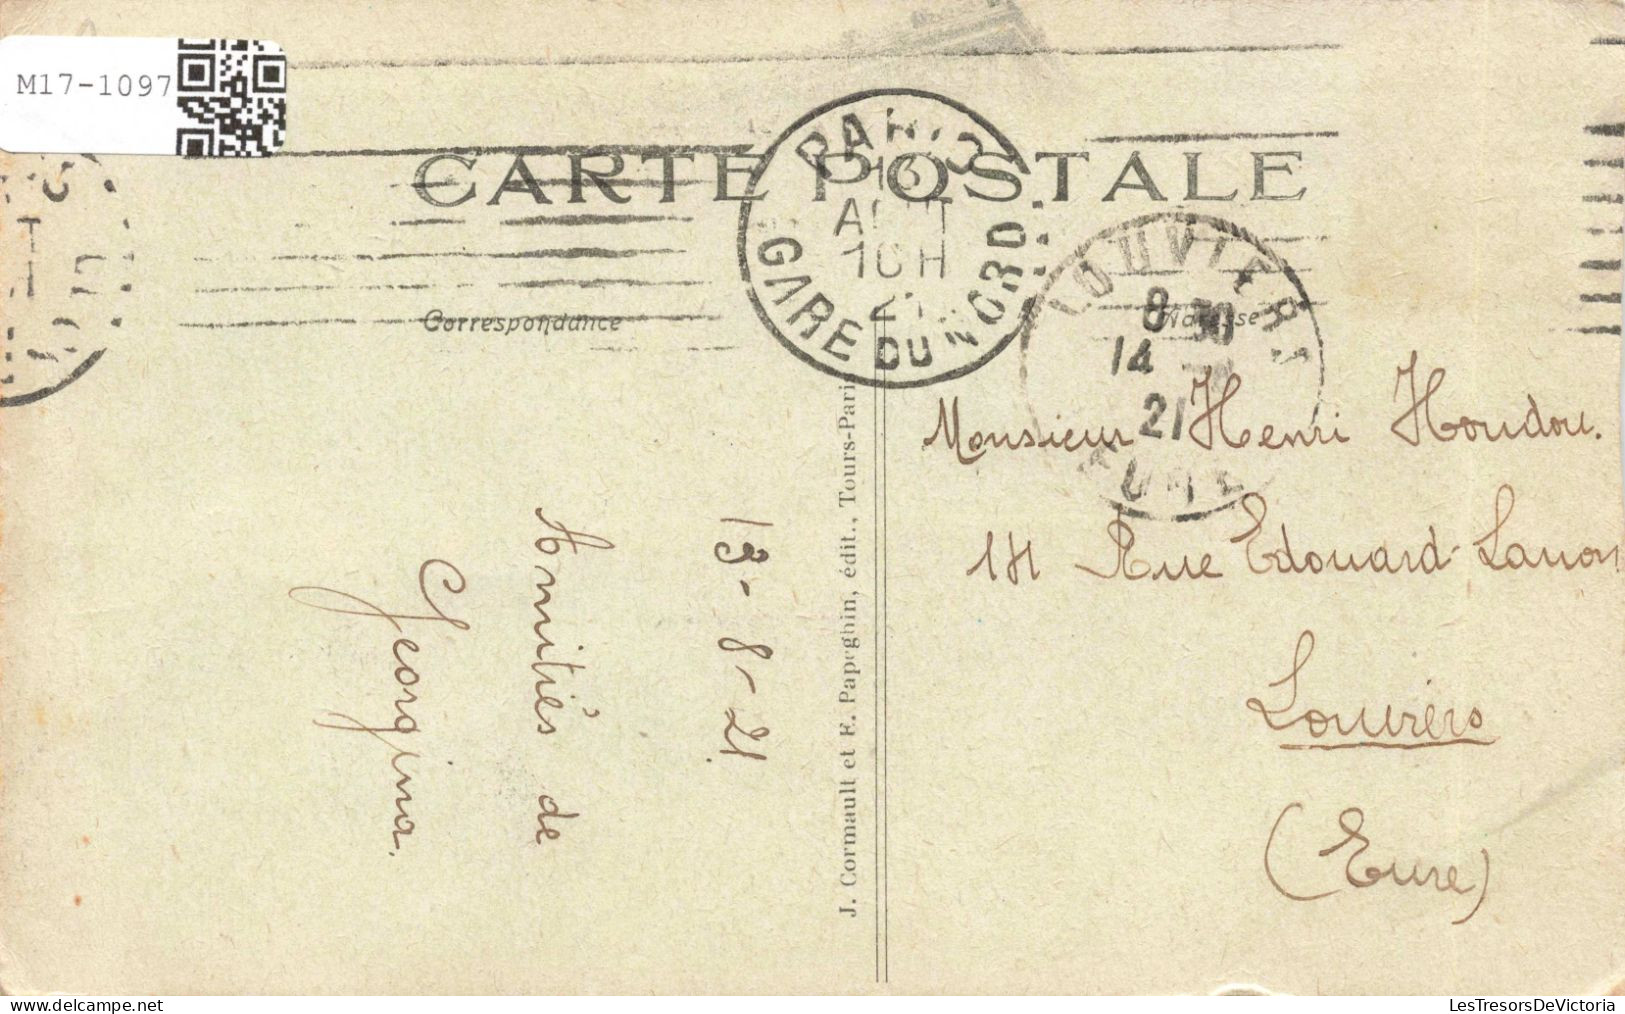 M17-1097
CARTE POSTALE
PARIS
13
AOUT
10H
21
GARE DU NORD
LOUVIERS
8 30
14
21
EURE
Correspondance
Adresse
13-8-21
Amitiés de
Georgina.
J. Cormault et E. Papeghin, édit., Tours-Paris
Monsieur Henri Houdou.
Rue Edouard Lanon
Louviers
(Eure)
LesTresorsDeVictoria